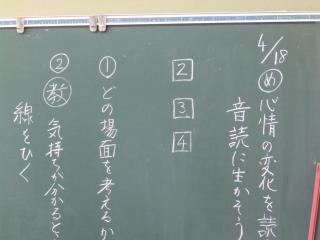 4/18 め 心情の変化を読
音読に生かそう
2 3 4
① どの場面を考えるか
② 教 気持ちが分かるとこ
線をひく